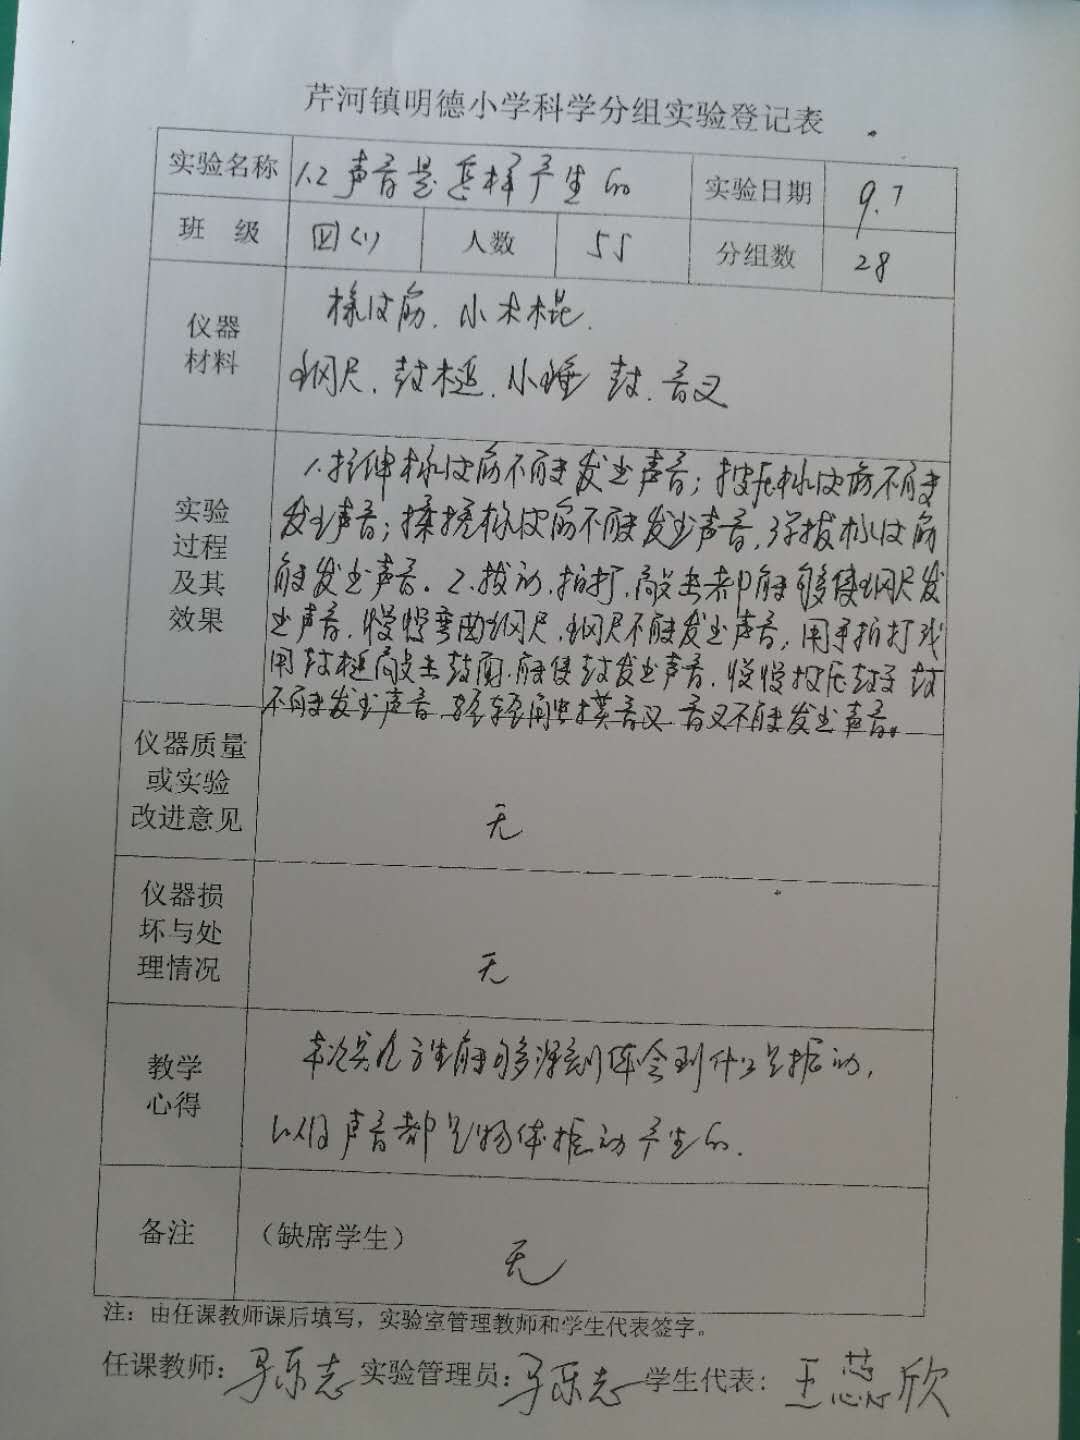 芹河镇明德小学科学分组实验登记表
实验名称 1.2 声音是怎样产生的 实验日期 9.7
班 级 四(1) 人数 55 分组数 28
仪器材料 橡皮筋.小木棍.
钢尺.鼓槌.小锤 鼓.音叉
实验过程及其效果 1.拉伸橡皮筋不能发出声音;按压橡皮筋不能
发出声音;揉搓橡皮筋不能发出声音,弹拔橡皮筋
能发出声音.2.拔动.拍打.敲击都能够使钢尺发
出声音.慢慢弯曲钢尺,钢尺不能发出声音,用手拍打或
用鼓槌敲击鼓面.能使鼓发出声音.慢慢按压鼓
不能发出声音 轻轻触摸音叉 音叉不能发出声音。
仪器质量或实验改进意见 无
仪器损坏与处理情况 无
教学心得 本次实验学生能够深刻体会到什么是振动,
以及声音都是物体振动产生的.
备注 (缺席学生) 无
注:由任课教师课后填写,实验室管理教师和学生代表签字。
任课教师: 实验管理员: 学生代表:王蕊欣